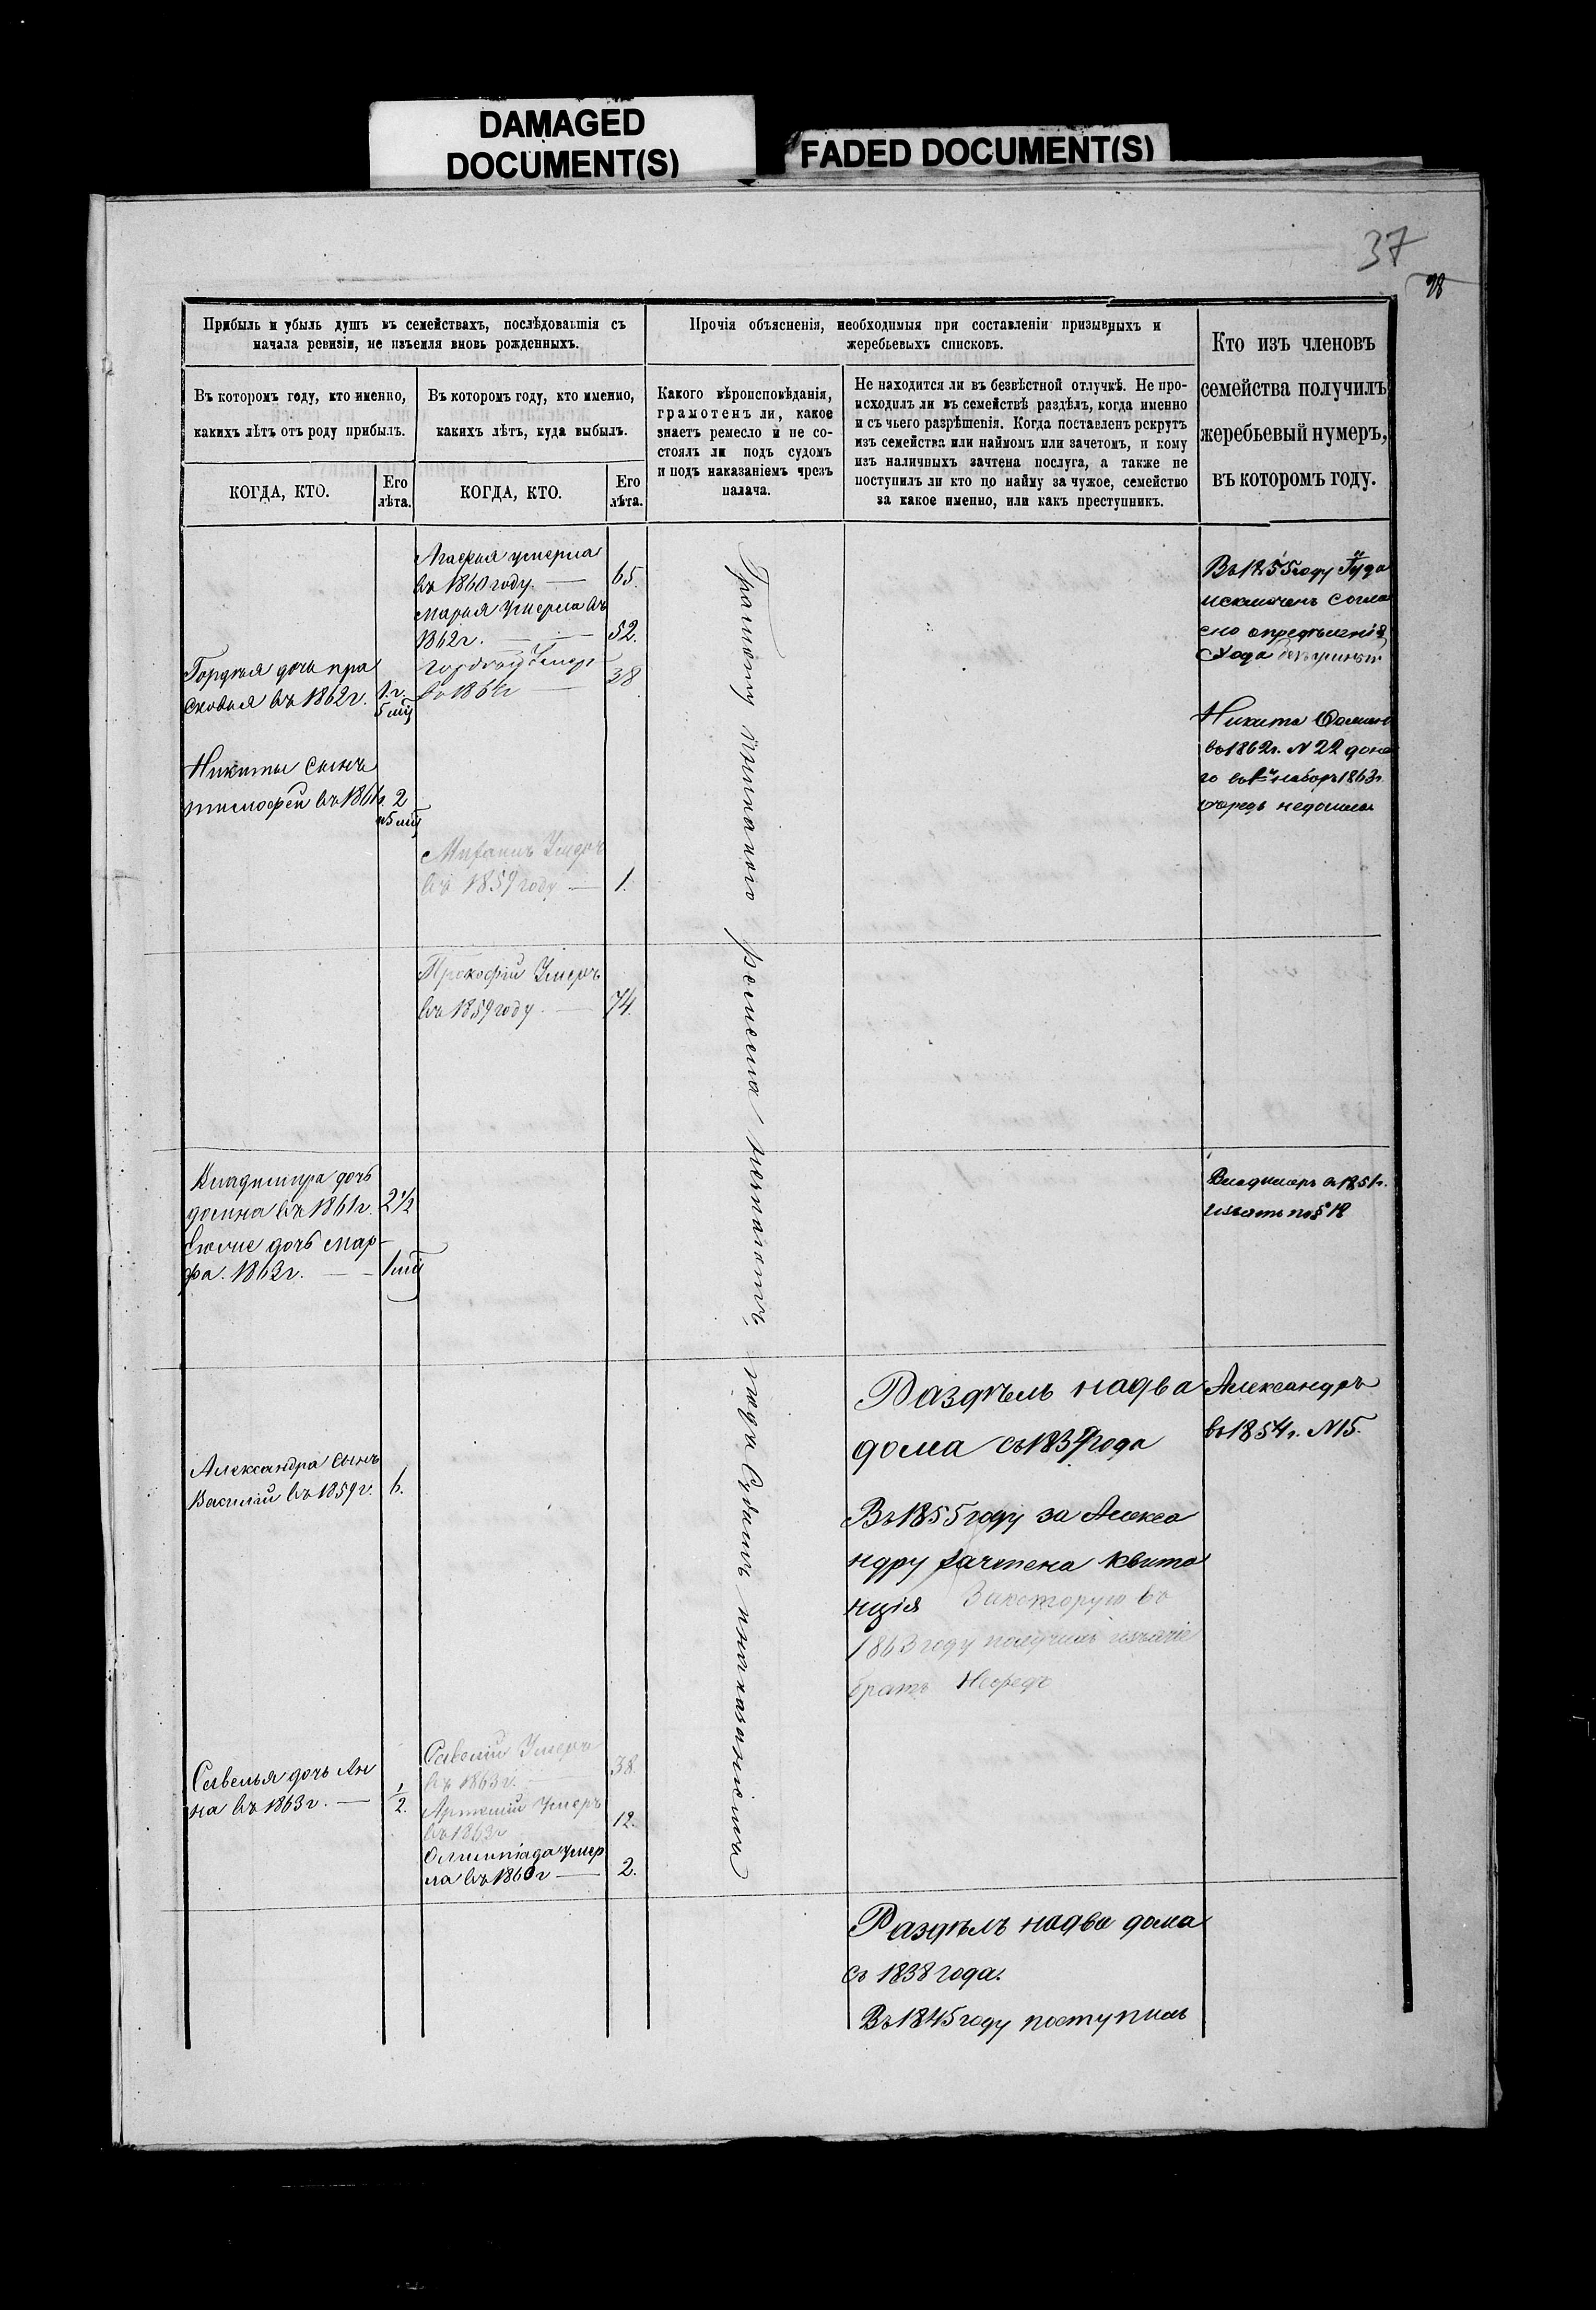 DAMAGED
DOCUMENT(S)
FADED DOCUMENT(S)
37
98
Прибыль и убыль душъ въ семействахъ, послѣдовавшія съ
начала ревизіи, не изъемля вновь рожденныхъ.
Въ которомъ году, кто именно,
какихъ лѣтъ отъ роду прибылъ.
КОГДА, КТО.
Его
лѣта.
Въ которомъ году, кто именно,
какихъ лѣтъ, куда выбылъ.
КОГДА, КТО.
Его
лѣта.
Прочія объясненія, необходимыя при составленіи призывныхъ и
жеребьевыхъ списковъ.
Какого вѣроисповѣданія,
грамотенъ ли, какое
знаетъ ремесло и не со-
стоялъ ли подъ судомъ
и подъ наказаніемъ чрезъ
палача.
Не находится ли въ безвѣстной отлучкѣ. Не про-
исходилъ ли въ семействѣ раздѣлъ, когда именно
и съ чьего разрѣшенія. Когда поставленъ рекрутъ
изъ семейства или наймомъ или зачетомъ, и кому
изъ наличныхъ зачтена послуга, а также не
поступилъ ли кто по найму за чужое, семейство
за какое именно, или какъ преступникъ.
Кто изъ членовъ
семейства получилъ
жеребьевый нумеръ,
въ которомъ году.
Гордѣя дочь пра
сковья въ 1862г. 1.г.
5 мц
Никиты сынъ
тимофей въ 1861г. 2
и 5 мц
Владимира дочь
домна въ 1861г. 2 1/2
Его же дочь Мар-
фа. 1863г. 1 мц
Александра сынъ
Василій въ 1859г. 6.
Савелья дочь Ан
на въ 1863г. 1/2.
Агафья умерла
въ 1860 году. 65.
Марья умерла въ
1862г. 52.
Гордѣй умеръ
въ 1861г 38
въ 1859 году 1.
Прокофій Умеръ
въ 1859 году 74.
Савелій Умеръ
въ 1863г. 38.
Артемій умеръ
въ 1863г 12.
Олимпіада умер
ла въ 1860г 2.
Грамоту ремесла незнаютъ подъ Судомъ и наказаніемъ
Раздѣлъ надва
дома съ 1839 года
Въ 1855 году за Алекса
ндру зачтена квита
нція За которую въ
1863 году получилъ изъятіе
братъ
Раздѣлъ надва дома
съ 1838 года.
Въ 1845 году поступилъ
Въ 1855 году
исключенъ Согла
сно опредѣленія
Схода
Никита
въ 1862г. N 22 доне
го наборъ 1863г.
очередь недошла
Владимеръ въ 1851г.
изъятъ по § 18
Александръ
въ 1854г. N 15.